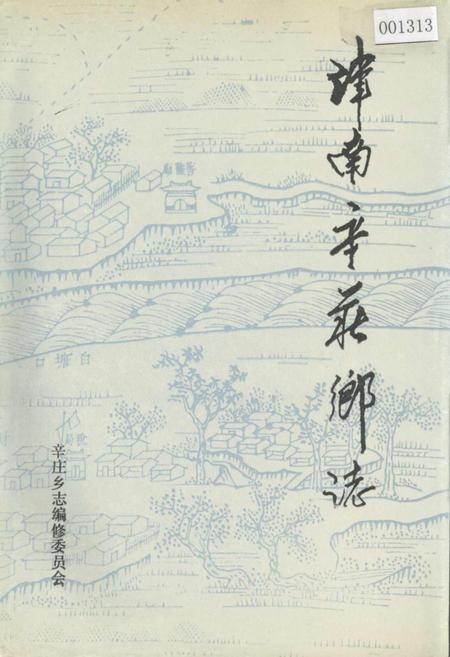 001313
津南辛莊鄉誌
白塘口
辛庄乡志编修委员会